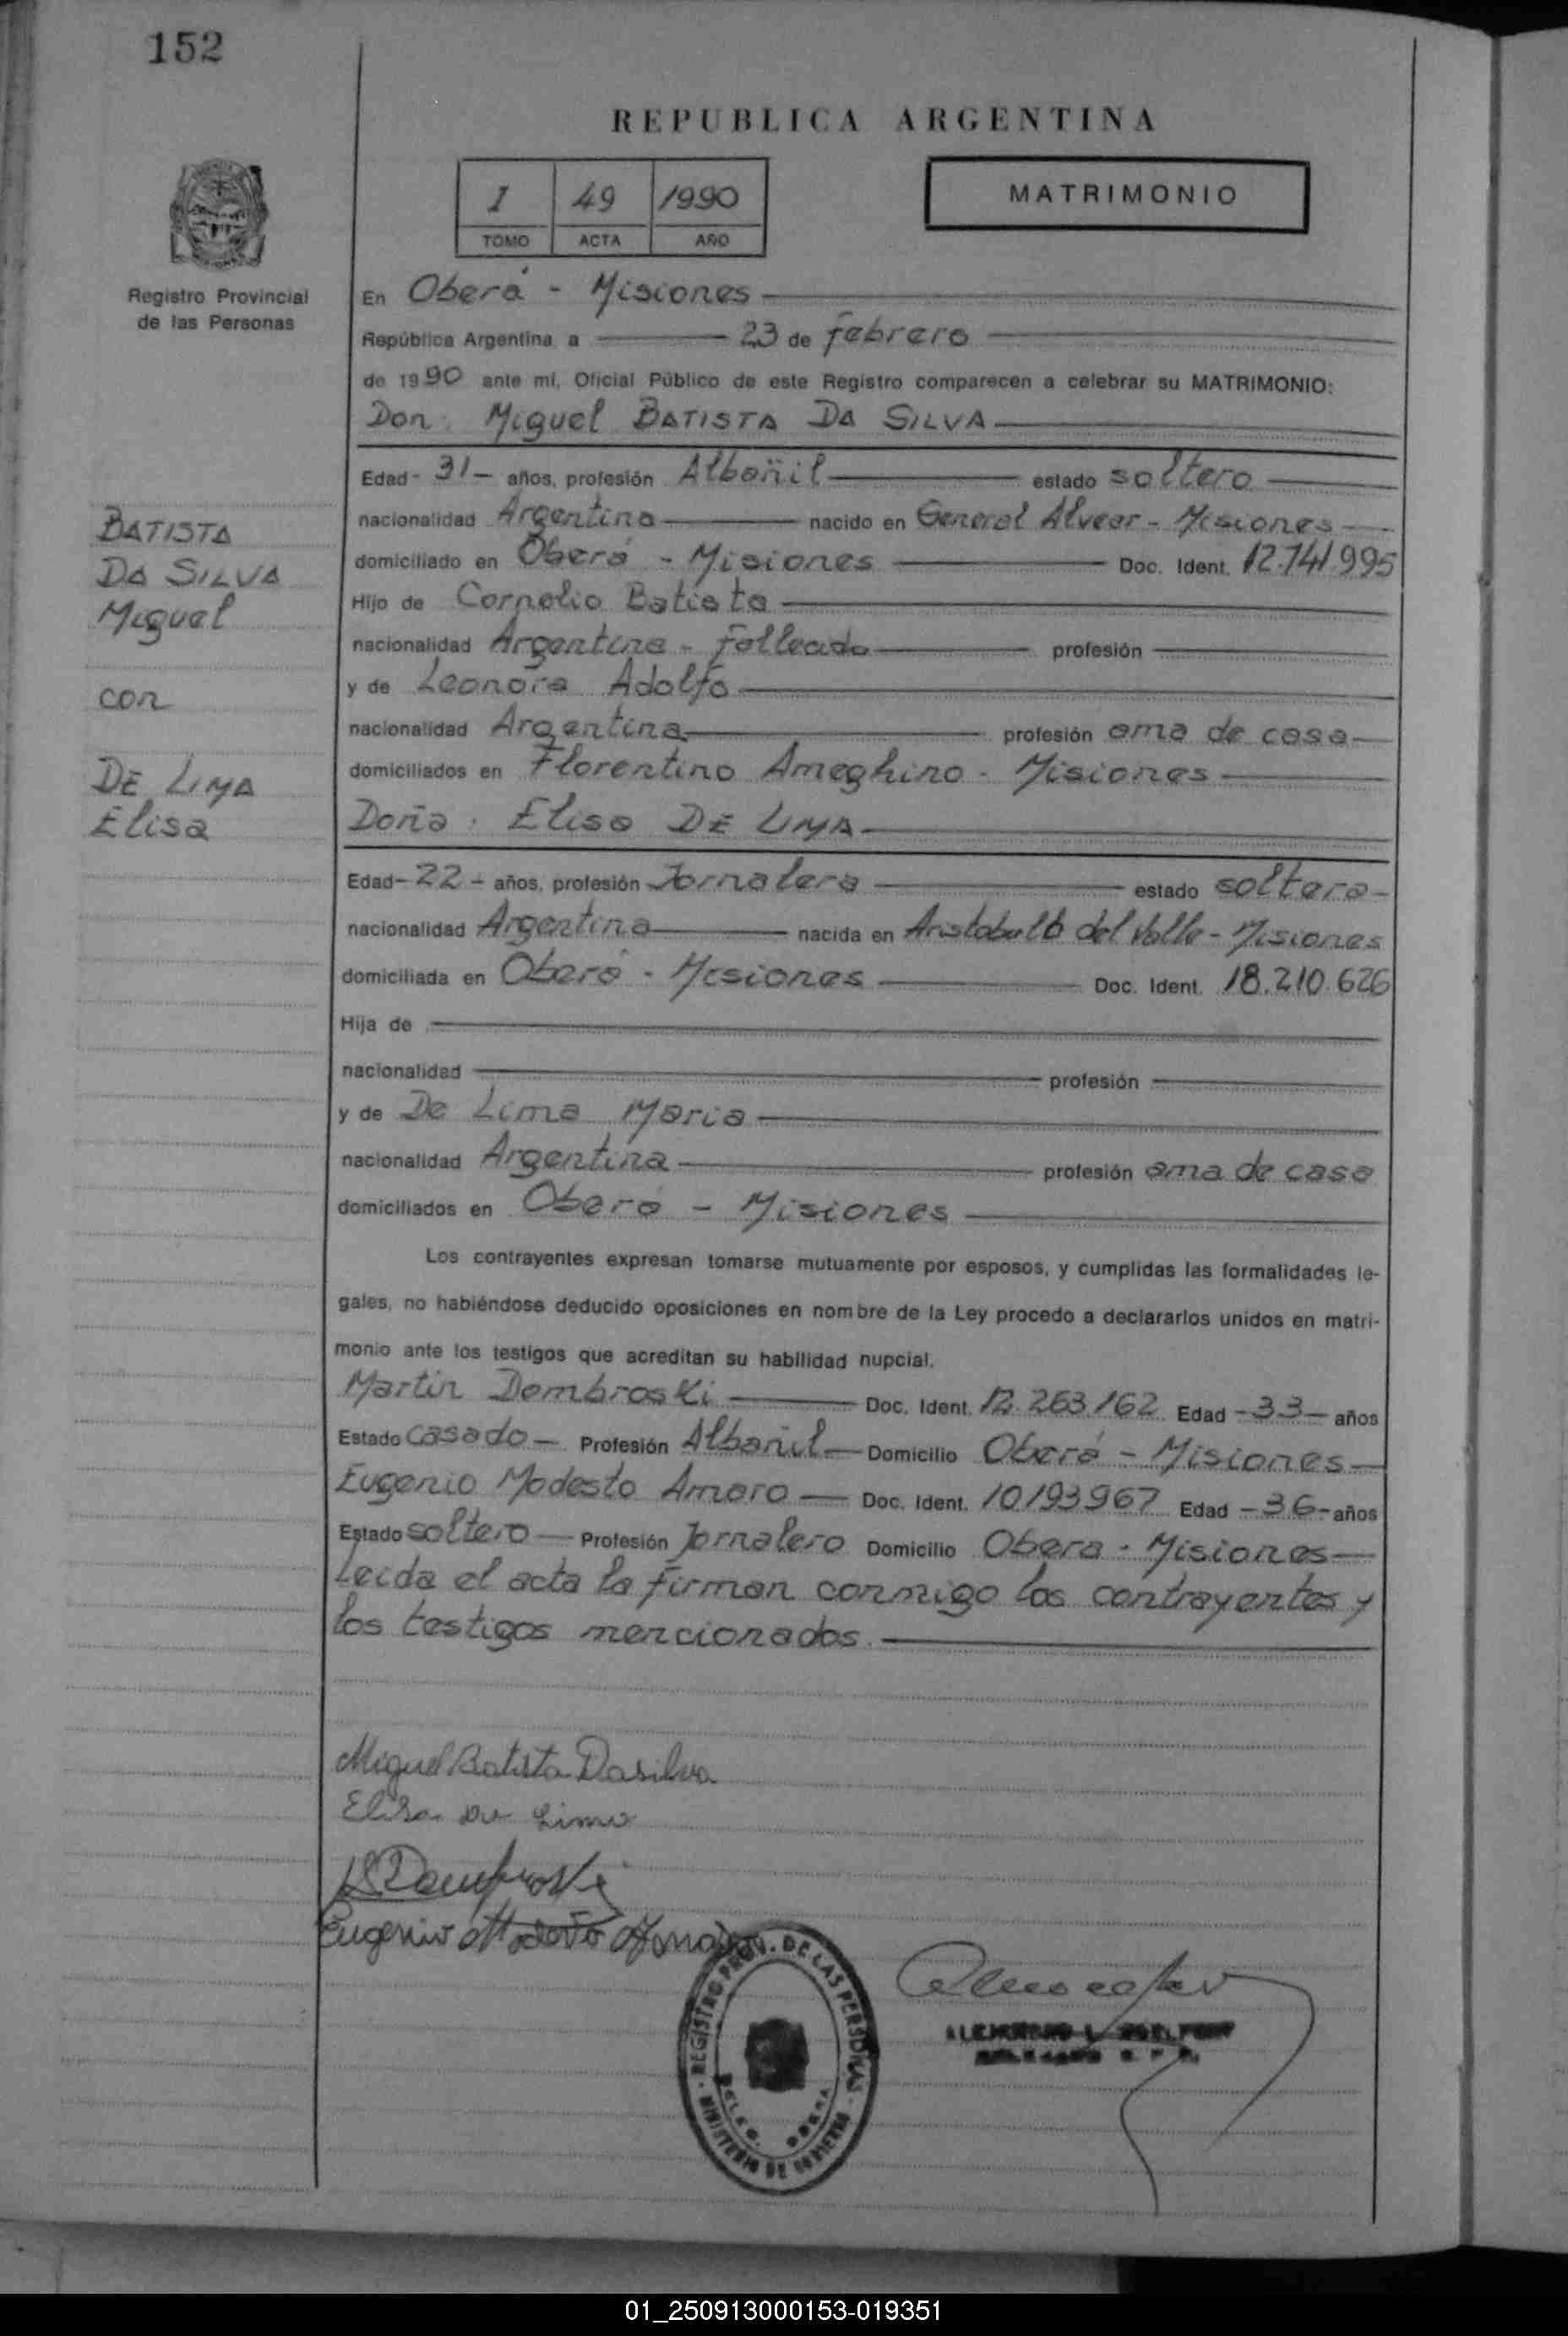 152
REPUBLICA ARGENTINA
I 49 1990
TOMO ACTA AÑO
MATRIMONIO
Registro Provincial
de las Personas
En Oberá - Misiones
República Argentina a 23 de febrero
de 1990 ante mí, Oficial Público de este Registro comparecen a celebrar su MATRIMONIO:
Don: Miguel BATISTA DA SILVA
Edad - 31 - años, profesión Albañil estado soltero
nacionalidad Argentina nacido en General Alvear - Misiones
domiciliado en Oberá - Misiones Doc. Ident. 12.741.995
Hijo de Cornelio Batista
nacionalidad Argentina - Falleado profesión
y de Leonora Adolfo
nacionalidad Argentina profesión ama de casa
domiciliados en Florentino Ameghino - Misiones
Doña: Elisa DE LIMA
Edad - 22 - años, profesión Jornalera estado soltera -
nacionalidad Argentina nacida en Aristobulo del Valle - Misiones
domiciliada en Oberá - Misiones Doc. Ident. 18.210.626
Hija de
nacionalidad profesión
y de De Lima Maria
nacionalidad Argentina profesión ama de casa
domiciliados en Oberá - Misiones
BATISTA
DA SILVA
Miguel
con
DE LIMA
Elisa
Los contrayentes expresan tomarse mutuamente por esposos, y cumplidas las formalidades le-
gales, no habiéndose deducido oposiciones en nombre de la Ley procedo a declararlos unidos en matri-
monio ante los testigos que acreditan su habilidad nupcial.
Martin Dombroski Doc. Ident. 12.263.162 Edad - 33 - años
Estado casado - Profesión Albañil - Domicilio Oberá - Misiones
Eugenio Modesto Amaro - Doc. Ident. 10193967 Edad - 36 - años
Estado soltero - Profesión Jornalero Domicilio Obera - Misiones
Leida el acta la firman conmigo los contrayentes y
los testigos mencionados.
Miguel Batista Dasilva
Elisa De Lima
Eugenio Modesto
REGISTRO PROV. DE LAS PERSONAS
MINISTERIO DE GOBIERNO
DELEG. OBERA
01_250913000153-019351